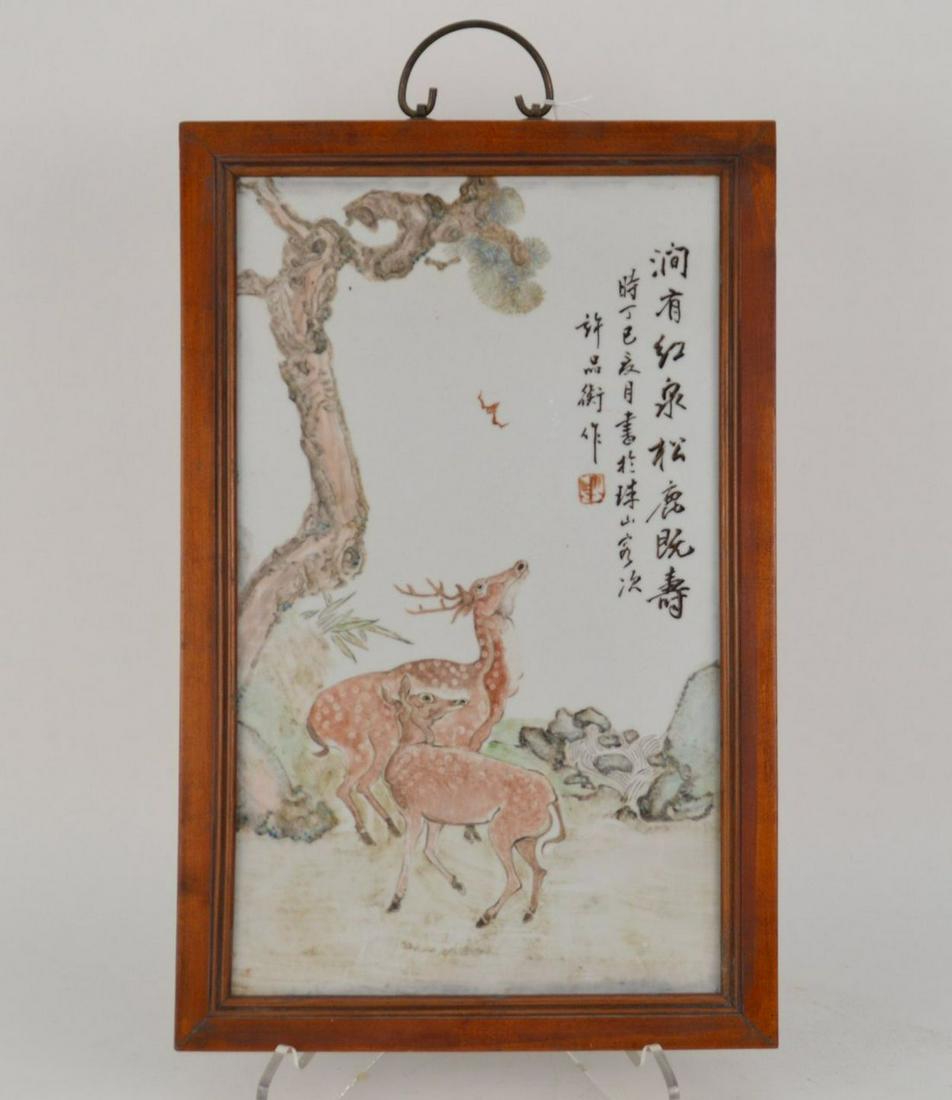 澗有紅泉松鹿既壽
時丁巳夜月書於珠山客次
許品衡作